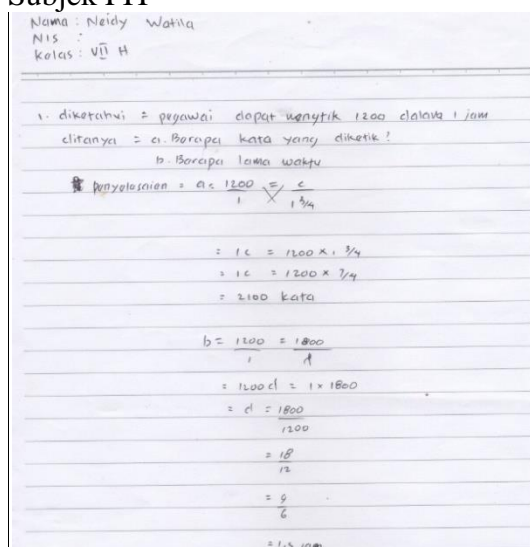 Nama : Neidy Watila
NIS :
Kelas : VII H
1. diketahui = pegawai dapat mengtik 1200 dalam 1 jam
ditanya = a. Berapa kata yang diketik?
b. Berapa lama waktu
penyelesaian = a = 1200/1 = c/1 3/4
= 1c = 1200 x 1 3/4
= 1c = 1200 x 7/4
= 2100 kata
b = 1200/1 = 1800/d
= 1200 d = 1 x 1800
= d = 1800/1200
= 18/12
= 9/6
= 1.5 jam